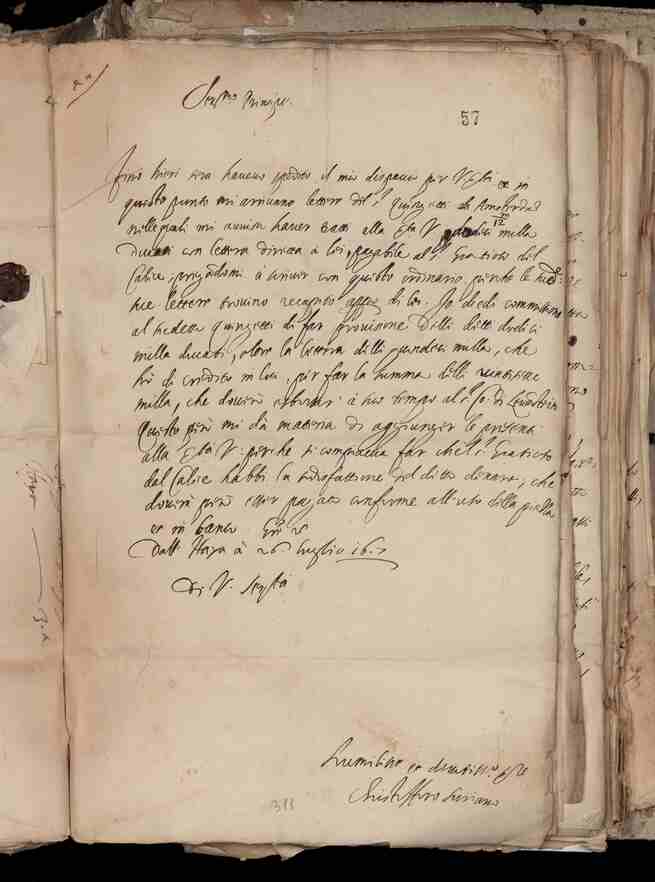 57
Ser.mo Principe.
Fino hieri sera havevo spedito il mio dispaccio per V. Ser.tà et in
questo punto mi arrivano lettere del s.r Quingetti di Amsterdam
nelle quali mi avvisa haver tratto alla Ser.tà V. dodici milla
12
ducati con lettera diretta a lei, pagabile al s.r Gratioso del
Calice, pregandomi à scriver con questo ordinario, perche le
sue lettere trovino recapito appresso di lei. Io diedi commissione
al medesimo Quingetti di far provisione delli detti dodici
milla ducati, oltre la lettera delli quindeci milla, che
hò di credito in lui, per far la summa delli ventisette
milla, che doverò esborsar à suo tempo al s.r Co. di Levenstein
Questo però mi dà materia di aggiunger le presenti
alla Ser.tà V. perche si compiaccia far che'l s.r Gratioso
dal Calice habbi la sodisfattione del ditto denaro, che
doverà però esser pagato conforme all'uso della piazza
et in banco. Gratie etc.
Dall' Haya à 26 luglio 1617
Di V. Ser.tà
Humiliss.o et devotiss.o ser.re
Christofforo Suriano
313